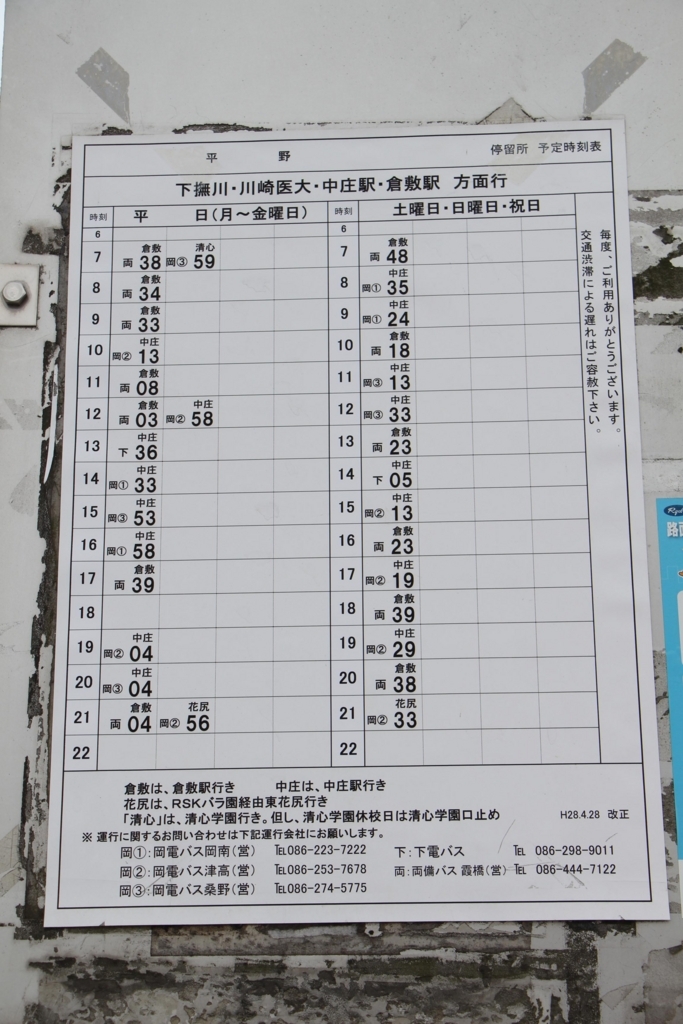 平 野 停留所 予定時刻表
下撫川・川崎医大・中庄駅・倉敷駅 方面行
時刻 平 日(月～金曜日) 時刻 土曜日・日曜日・祝日
6 6
倉敷 清心 倉敷
7 両 38 岡③ 59 7 両 48
倉敷 中庄
8 両 34 8 岡① 35
倉敷 中庄
9 両 33 9 岡① 24
中庄 倉敷
10 岡② 13 10 両 18
倉敷 中庄
11 両 08 11 岡③ 13
倉敷 中庄 中庄
12 両 03 岡② 58 12 岡③ 33
中庄 倉敷
13 下 36 13 両 23
中庄 中庄
14 岡① 33 14 下 05
中庄 中庄
15 岡③ 53 15 岡② 13
中庄 倉敷
16 岡① 58 16 両 23
倉敷 中庄
17 両 39 17 岡② 19
倉敷
18 18 両 39
中庄 中庄
19 岡② 04 19 岡② 29
中庄 倉敷
20 岡③ 04 20 両 38
倉敷 花尻 花尻
21 両 04 岡② 56 21 岡② 33
22 22
毎度、ご利用ありがとうございます。
交通渋滞による遅れはご容赦下さい。
倉敷は、倉敷駅行き 中庄は、中庄駅行き
花尻は、RSKバラ園経由東花尻行き
「清心」は、清心学園行き。但し、清心学園休校日は清心学園口止め H28.4.28 改正
※ 運行に関するお問い合わせは下記運行会社にお願いします。
岡①:岡電バス岡南(営) ℡086-223-7222 下:下電バス ℡ 086-298-9011
岡②:岡電バス津高(営) ℡086-253-7678 両:両備バス 霞橋(営) ℡ 086-444-7122
岡③:岡電バス桑野(営) ℡086-274-5775
路面